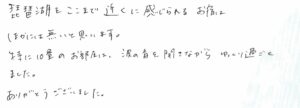 琵琶湖をここまで近くに感じられるお宿は
ほかには無いと思います。
特に10畳のお部屋は、波の音を聞きながらゆっくり過ごせ
ました。
ありがとうございました。